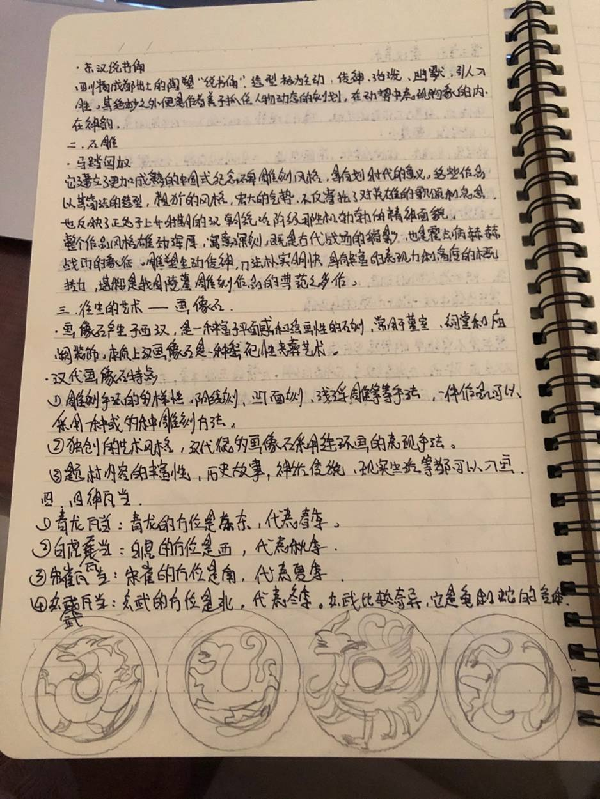 ·东汉说书俑
四川成都出土的陶塑"说书俑"造型极为生动,传神,诙谐、幽默,引人入
胜,其绝妙之处便高作者善于抓住人物动态的刻划,在动势中表现形象的内
在神韵.
二.石雕
·马踏匈奴
它建立了更加成熟的中国式纪念碑雕刻风格,具有划时代的意义,这些作品
以其高远的造型,粗犷的风格,宏大的气势,不仅寄托了对英雄的歌颂和怀念
也反映了正处于上升时期的汉
整个作品风格雄浑深厚,寓意深刻,既是古代战场的缩影,也是霍去病赫赫
战功的象征。雕塑生动传神,刀法朴实明快,具有丰富的表现力和高度的
三.往生的艺术——画像石.
·画像石产生于西汉,是一种富于平面感和绘画性的石刻,常用于墓室、祠堂和庙
阙装饰,本质上汉画像石是一种祭祀性丧葬艺术。
·汉代画像石特点
①雕刻手法的多样性.阴线刻、凹面刻、浅浮雕等等手法,一件作品可以
采用一种或的几种雕刻方法。
②独创的艺术风格,汉代的画像石采用连环画的表现手法。
③题材内容的丰富性,历史故事,神水传说,现实生活等都可以入画.
四.四神瓦当.
①青龙瓦当:青龙的方位是东,代表春季。
②白虎瓦当:白虎的方位是西,代表秋季.
③朱雀瓦当:朱雀的方位是南,代表夏季.
④玄武瓦当:玄武的方位是北,代表冬季。玄武比较奇异,它是龟和蛇的
武